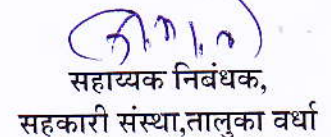 सहाय्यक निबंधक,
सहकारी संस्था,तालुका वर्धा